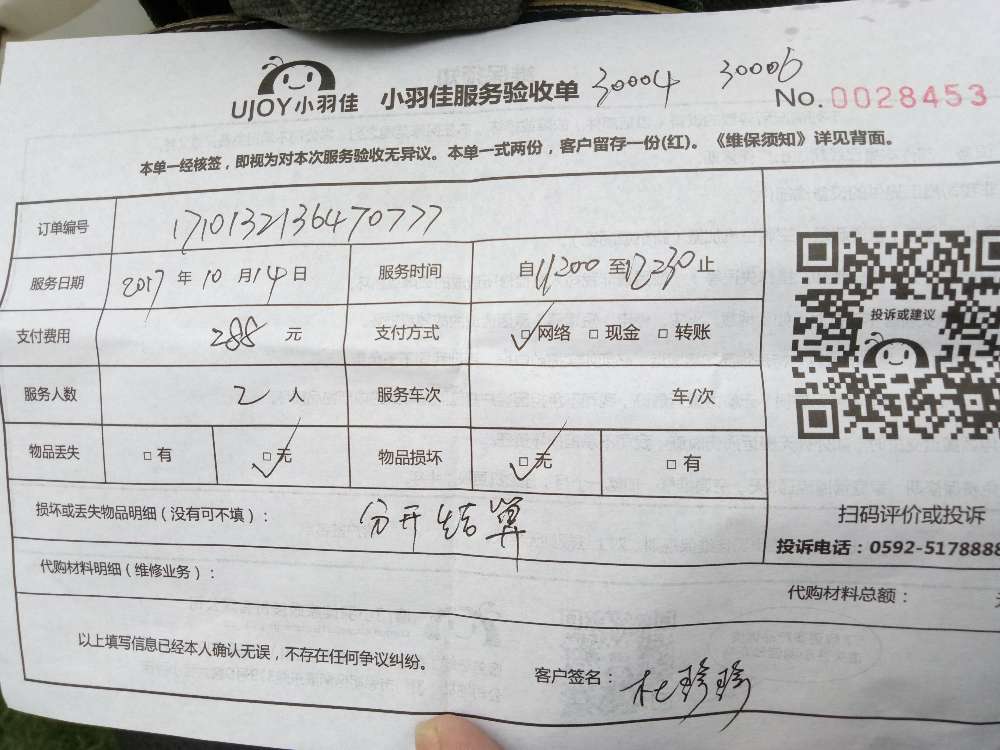 UJOY小羽佳 小羽佳服务验收单 30004 30006
No. 0028453
本单一经核签，即视为对本次服务验收无异议。本单一式两份，客户留存一份(红)。《维保须知》详见背面。
订单编号 171013213647 0777
服务日期 2017 年 10 月 14 日 服务时间 自 至 止
支付费用 288 元 支付方式 □网络 □现金 □转账
服务人数 2 人 服务车次 车/次
物品丢失 □有 □无 物品损坏 □无 □有
损坏或丢失物品明细（没有可不填）： 分开结算
代购材料明细（维修业务）：
以上填写信息已经本人确认无误，不存在任何争议纠纷。
客户签名： 杜珍珍
投诉或建议
扫码评价或投诉
投诉电话：0592-5178888
代购材料总额：